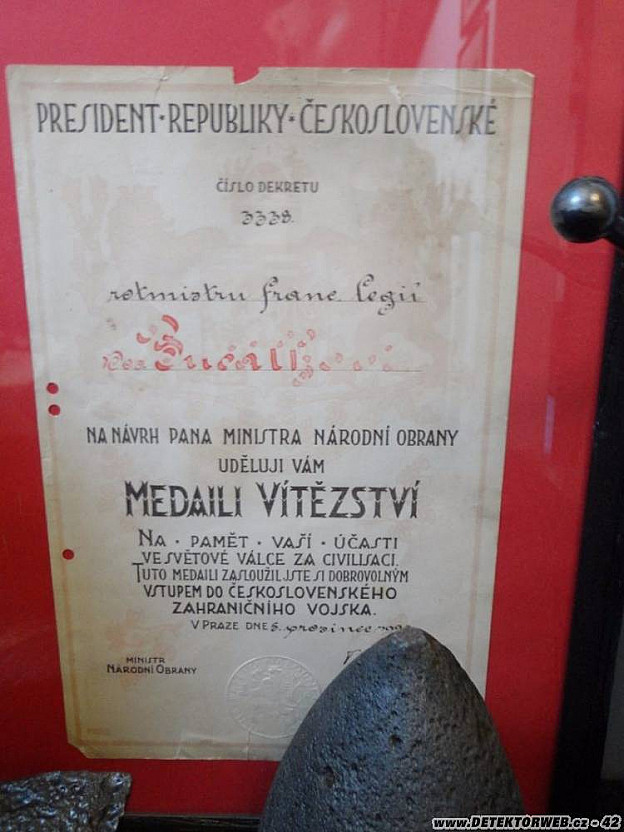 PRESIDENT · REPUBLIKY · ČESKOSLOVENSKÉ
ČÍSLO DEKRETU
3338.
rotmistru franc. Legií
NA NÁVRH PANA MINISTRA NÁRODNÍ OBRANY
UDĚLUJI VÁM
MEDAILI VÍTĚZSTVÍ
NA · PAMĚT · VAŠÍ · ÚČASTI
VE SVĚTOVÉ VÁLCE ZA CIVILISACI.
TUTO MEDAILI ZASLOUŽIL JSTE SI DOBROVOLNÝM
VSTUPEM DO ČESKOSLOVENSKÉHO
ZAHRANIČNÍHO VOJSKA.
V PRAZE DNE 5. prosince
MINISTR
NÁRODNÍ OBRANY
www.DETEKTORWEB.cz - 42